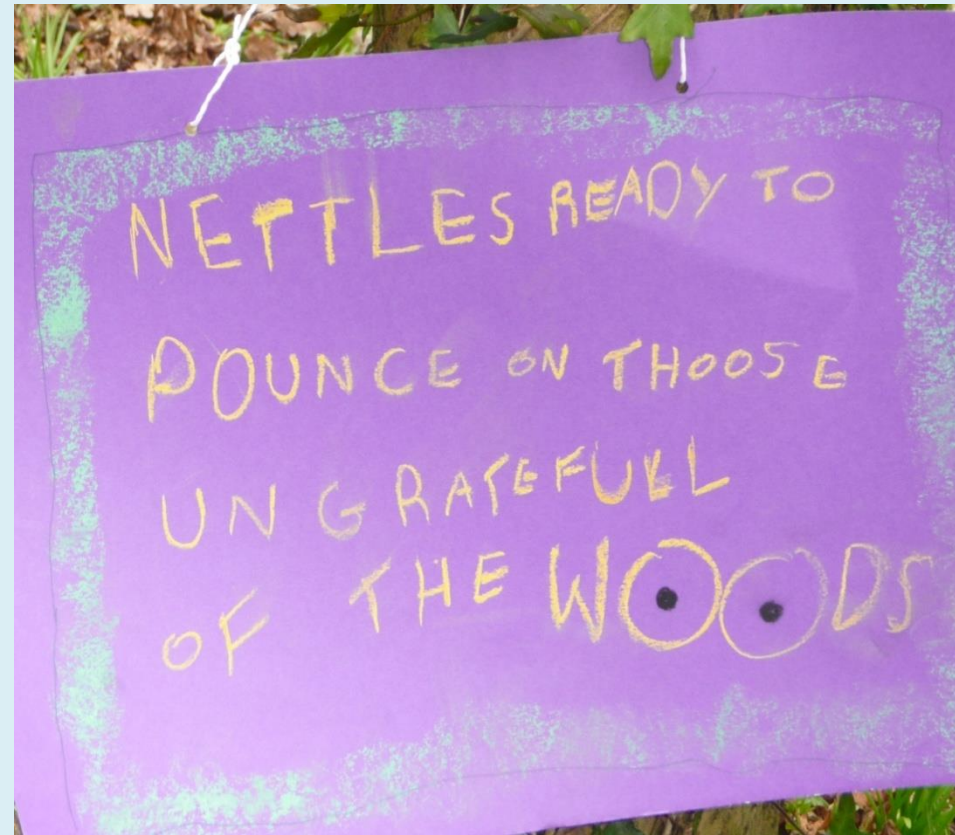 NETTLES READY TO
POUNCE ON THOOSE
UNGRATEFULL
OF THE WOODS